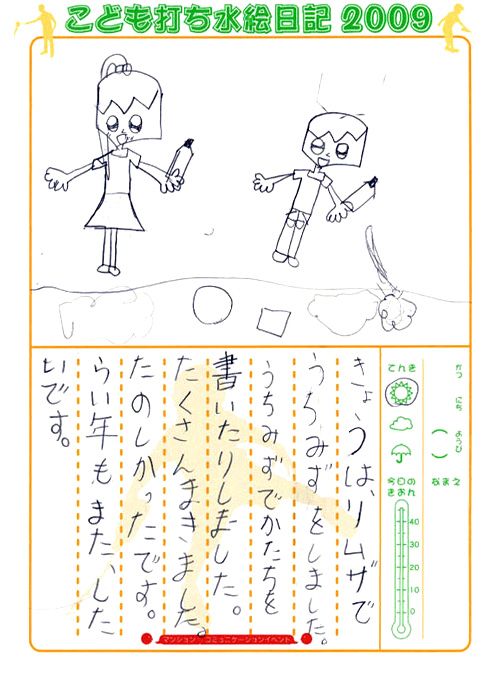 こども打ち水絵日記 2009
がつ にち ようび
( )
なまえ
てんき
今日の
きおん
40
30
20
10
0
きょうは、リムザで
うちみずをしました。
うちみずでかたちを
書いたりしました。
たくさんまきました。
たのしかったです。
らい年もまた、した
いです。
マンション コミュニケーションイベント